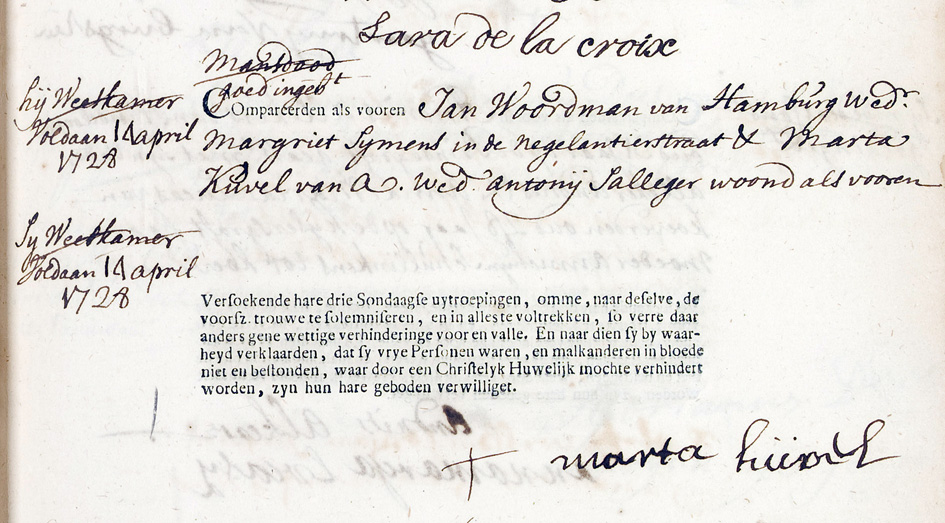 Sara de la croix
Mansdood
goed ingebt
hij Weeskamer
Voldaan 14 april
1728
Compareerden als vooren Jan Woordman van Hamburg Wedr.
Margriet Symens in de negelantierstraat & Marta
Kuvel van A. wed. antonij Salleger woond als vooren
Sy Weeskamer
Voldaan 14 april
1728
Versoekende hare drie Sondaagse uytroepingen, omme, naar deselve, de
voorsz. trouwe te solemniseren, en in alles te voltrekken, so verre daar
anders gene wettige verhinderinge voor en valle. En naar dien sy by waar-
heyd verklaarden, dat sy vrye Personen waren, en malkanderen in bloede
niet en bestonden, waar door een Christelyk Huwelijk mochte verhindert
worden, zyn hun hare geboden verwilliget.
marta